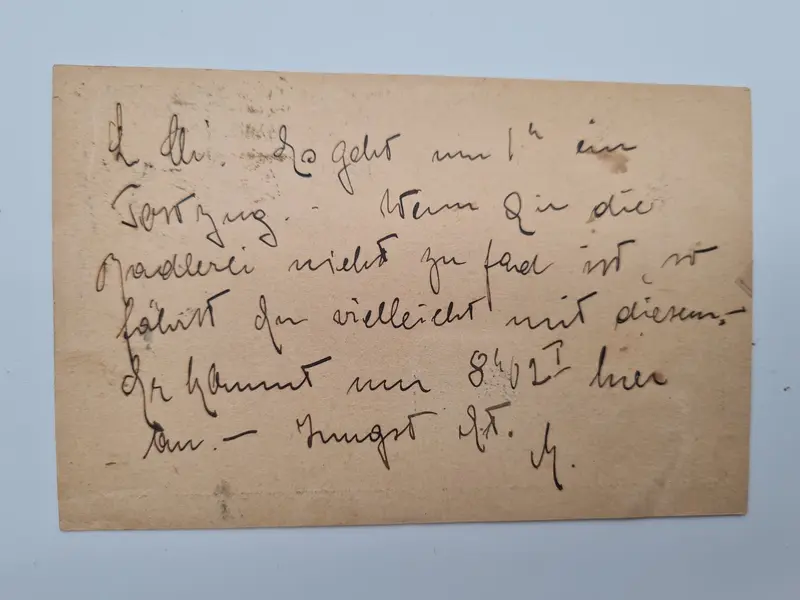 L. Es geht um 1ʰ ein
Postzug. – Wenn Dir die
Radlerei nicht zu fad ist, so
fährst Du vielleicht mit diesem. –
Er kommt um 8ʰ02 hier
an. –
M.